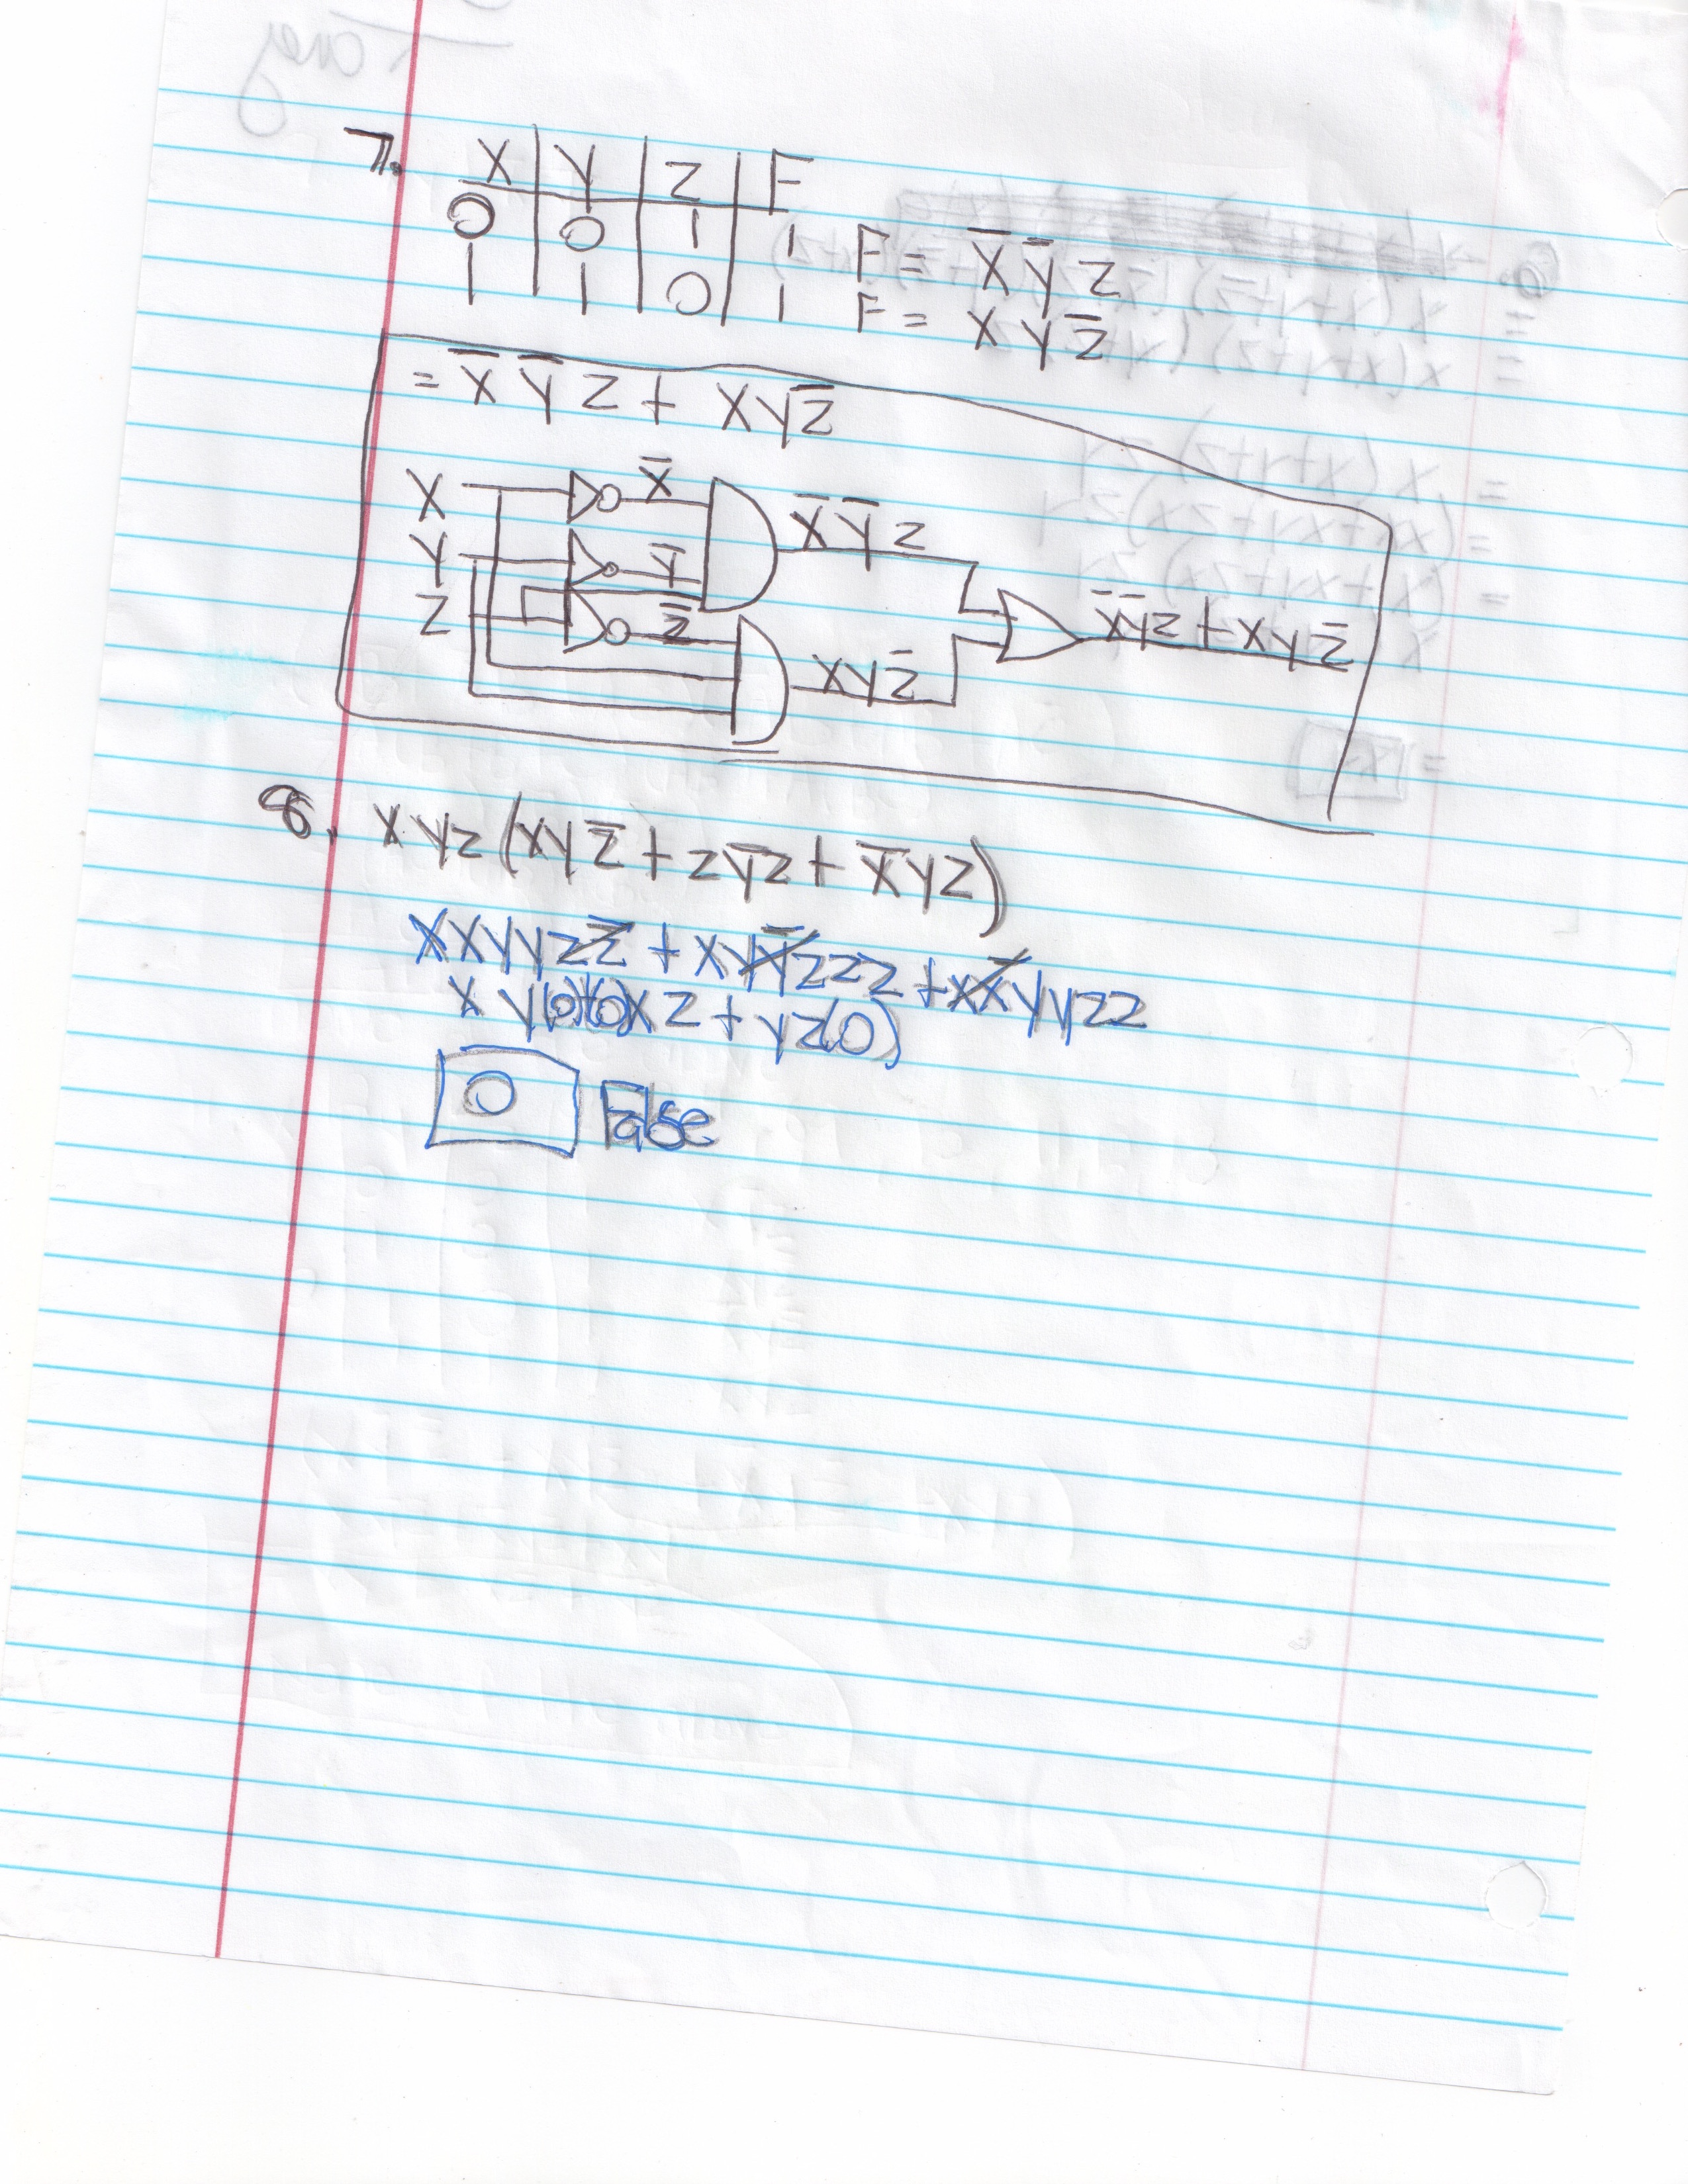 7. X Y Z F
0 0 1 1 F = X̅ Y̅ Z
1 1 0 1 F = X Y Z̅
= X̅ Y̅ Z + X Y Z̅
X X̅ X̅ Y̅ Z
Y Y̅
Z Z̅ X̅Y̅Z + XYZ̅
XYZ̅
8. XYZ(XYZ̅ + ZY̅Z + X̅YZ)
XXYYZZ̅ + XYY̅ZZZ + XX̅YYZZ
X Y(0)+(0)XZ + YZ(0)
0 False